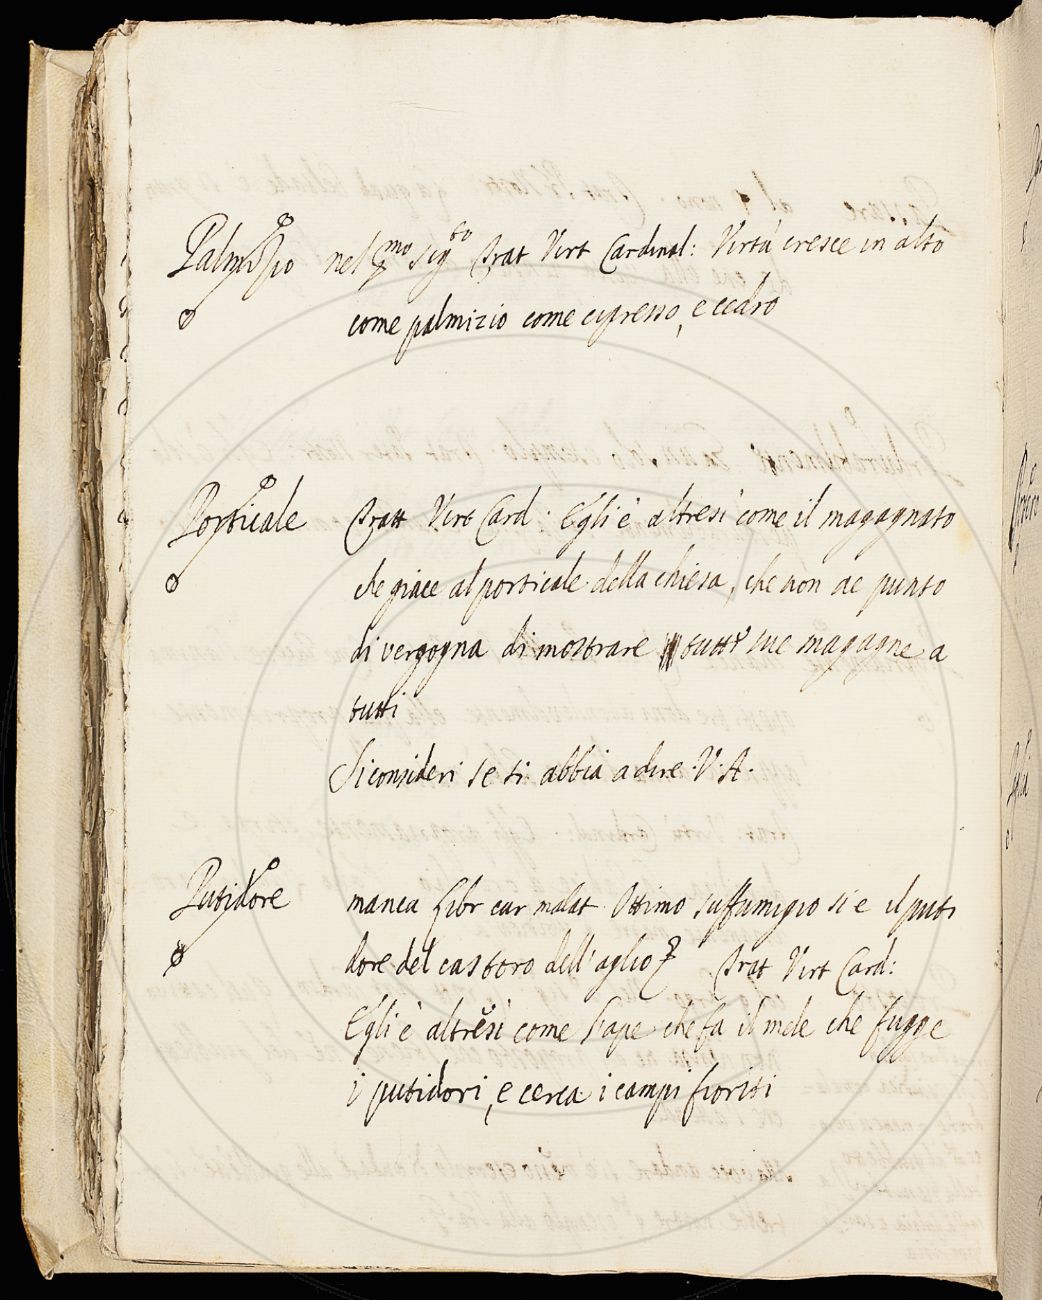 Palmizio nel pmo sigto Trat Virt Cardinal: Virtù cresce in alto
come palmizio come cipresso, e cedro
Porticale Tratt Virt Card: Egli è altresì come il magagnato
che giace al porticale della chiesa, che non ae punto
di vergogna di mostrare tutte sue magagne a
tutti
Si consideri se si abbia a dire. V. A.
Putidore manca Libr cur malat Ottimo suffumigio si e il puti
dore del castoro dell'aglio Trat Virt Card:
Egli è altresì come l'ape che fa il mele che fugge
i putidori, e cerca i campi fioriti